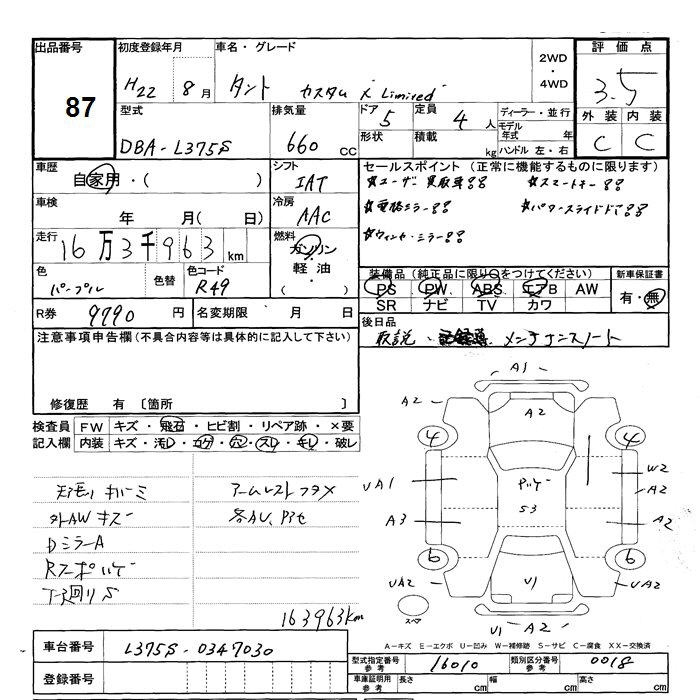 出品番号
87
初度登録年月
H22 年 8 月
車名・グレード
タント カスタム X Limited
2WD
・
4WD
評価点
3.5
外装 内装
C C
型式
DBA-L375S
排気量
660 cc
ドア
5
形状
定員
4 人
積載
kg
ディーラー・並行
モデル年式 年
ハンドル 左・右
車歴
自家用・( )
シフト
IAT
車検
年 月( 日)
冷房
AAC
走行
16万3千963 km
燃料
ガソリン
軽油
( )
色
パープル
色替
色コード
R49
R券 9790 円
名変期限 月 日
セールスポイント(正常に機能するものに限ります)
☆ユーザー買取車!!
☆スマートキー!!
☆電格ミラー!!
☆パワースライドドア!!
☆ウィンカーミラー!!
装備品(純正品に限り○をつけてください)
PS PW. ABS. エアB AW
SR ナビ TV カワ
新車保証書
有・無
後日品
取説・記録簿 メンテナンスノート
注意事項申告欄(不具合内容等は具体的に記入して下さい)
修復歴 有〔箇所 〕
検査員記入欄
FW キズ・飛石・ヒビ割・リペア跡・×要
内装 キズ・汚レ・コゲ・穴・スレ・キレ・破レ
外AWキズ
DミラーA
下廻りS
アームレストフタメ
163963km
A1
A2 A2 A2
4 4
UA1 W2
A2
ルーフ
S3
A3 A2
6 6
UA2 U1 UA2
スペア
U1 A2
A-キズ E-エクボ U-凹み W-補修跡 S-サビ C-腐食 XX-交換済
車台番号 L375S-0347030
登録番号
型式指定番号参考 16010
類別区分番号参考 0018
車庫証明用参考
長さ cm 幅 cm 高さ cm